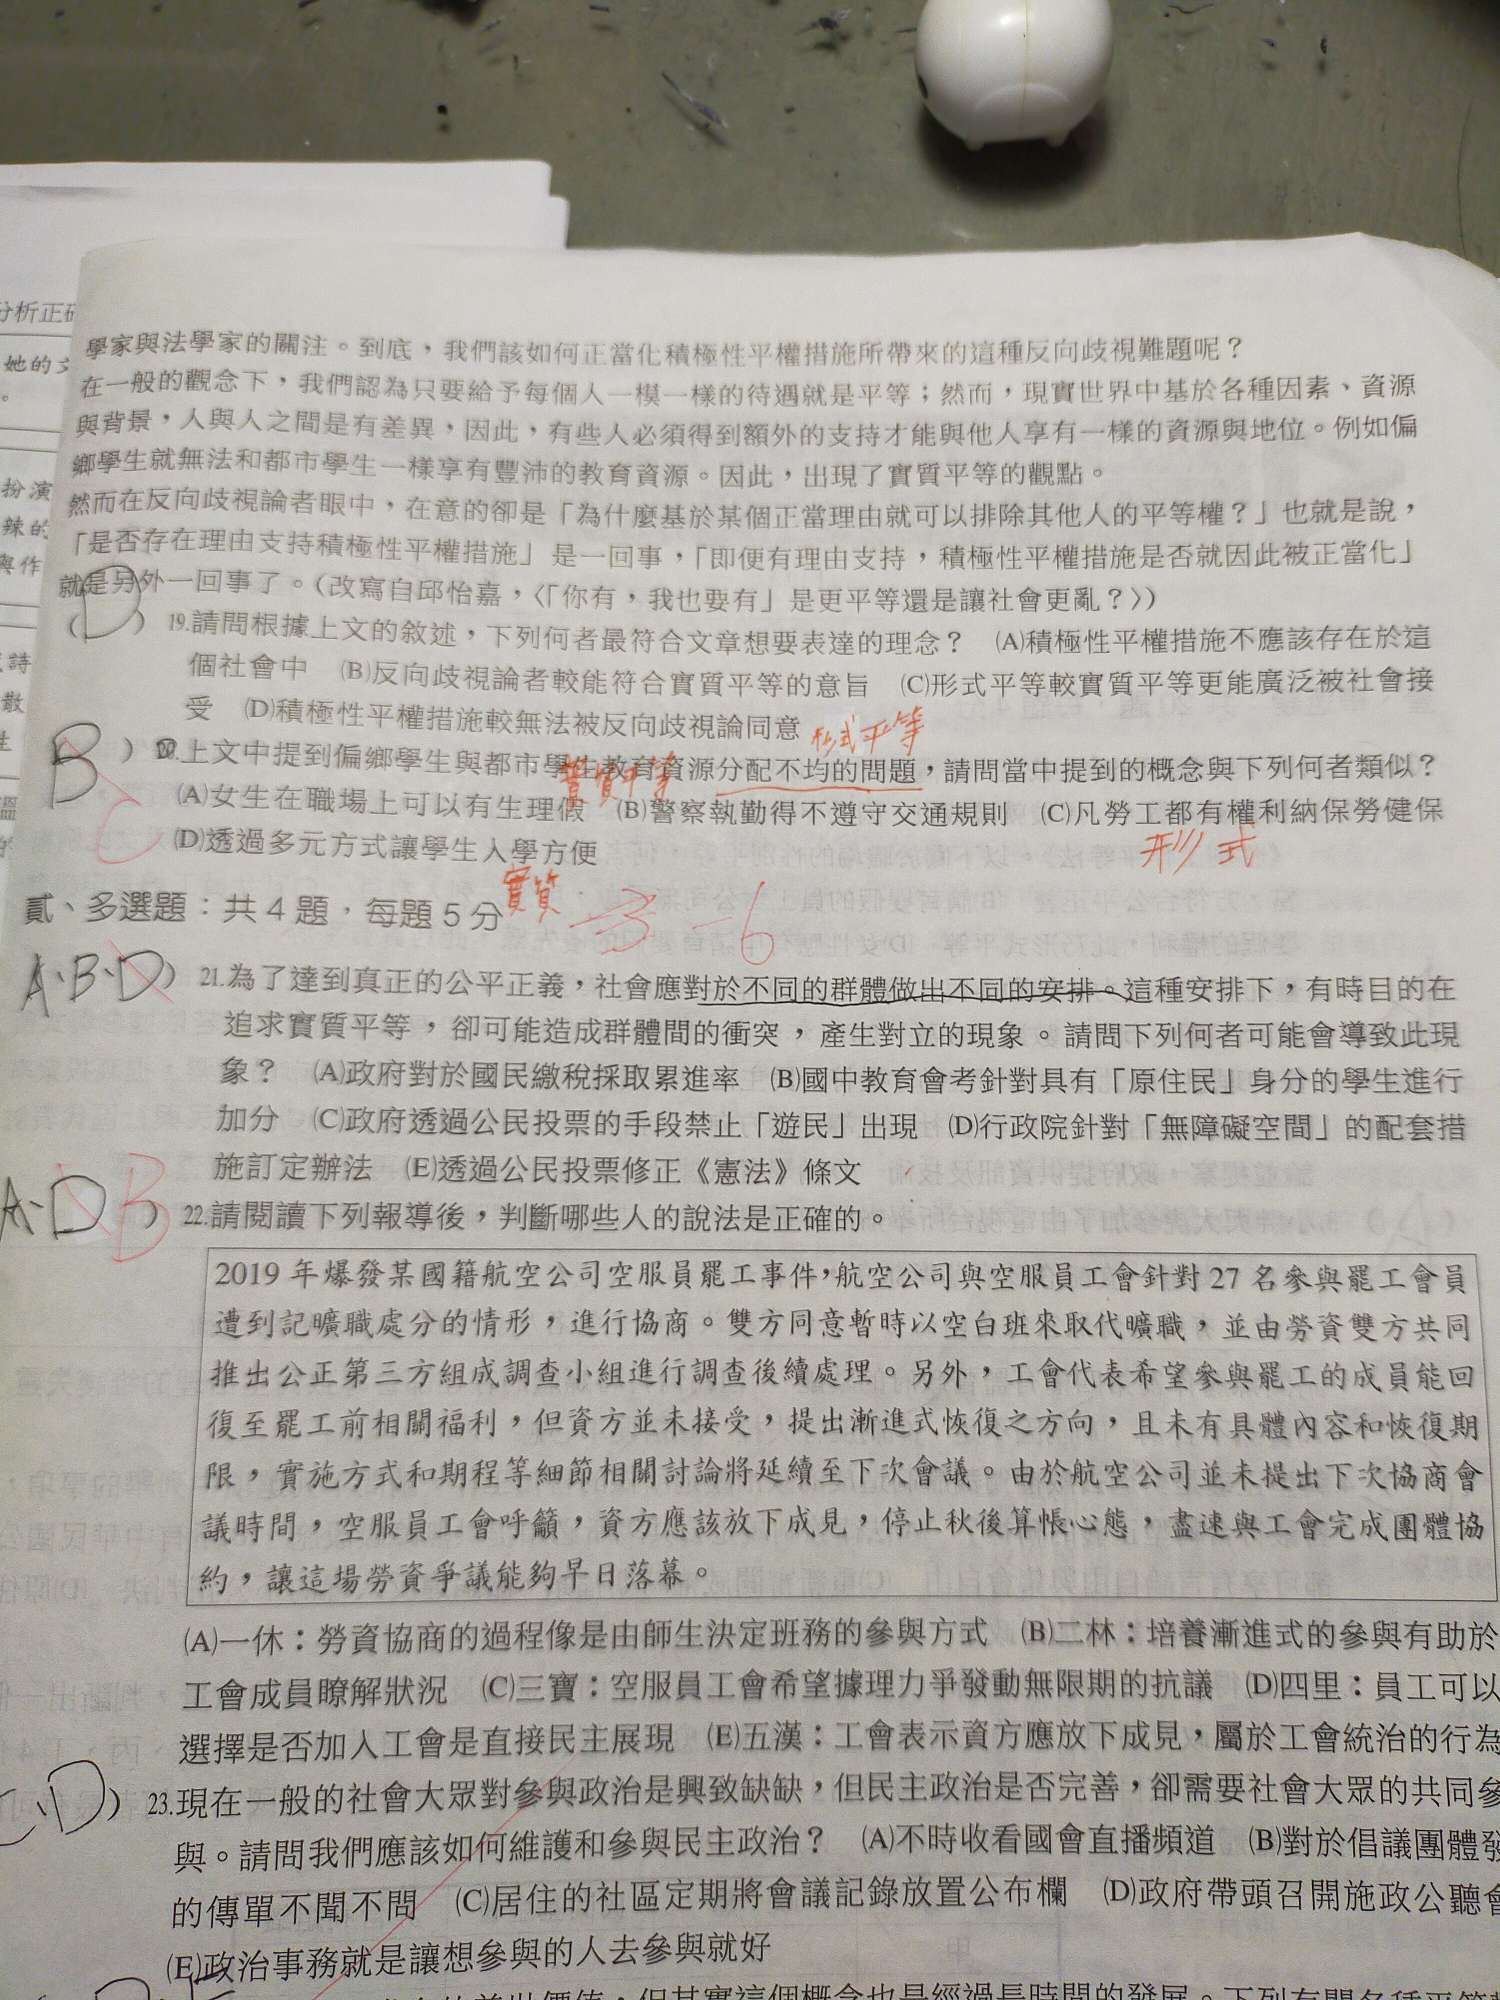 分析正確
她的文
扮演
辣的
與作
詩
散
學家與法學家的關注。到底，我們該如何正當化積極性平權措施所帶來的這種反向歧視難題呢？
在一般的觀念下，我們認為只要給予每個人一模一樣的待遇就是平等；然而，現實世界中基於各種因素、資源
與背景，人與人之間是有差異，因此，有些人必須得到額外的支持才能與他人享有一樣的資源與地位。例如偏
鄉學生就無法和都市學生一樣享有豐沛的教育資源。因此，出現了實質平等的觀點。
然而在反向歧視論者眼中，在意的卻是「為什麼基於某個正當理由就可以排除其他人的平等權？」也就是說，
「是否存在理由支持積極性平權措施」是一回事，「即便有理由支持，積極性平權措施是否就因此被正當化」
就是另外一回事了。（改寫自邱怡嘉，〈「你有，我也要有」是更平等還是讓社會更亂？〉）
（D）19.請問根據上文的敘述，下列何者最符合文章想要表達的理念？ (A)積極性平權措施不應該存在於這
個社會中 (B)反向歧視論者較能符合實質平等的意旨 (C)形式平等較實質平等更能廣泛被社會接
受 (D)積極性平權措施較無法被反向歧視論同意
形式平等
B ）20.上文中提到偏鄉學生與都市學生教育資源分配不均的問題，請問當中提到的概念與下列何者類似？
實質平等
C
(A)女生在職場上可以有生理假 (B)警察執勤得不遵守交通規則 (C)凡勞工都有權利納保勞健保
形式
(D)透過多元方式讓學生入學方便
實質
貳、多選題：共 4 題，每題 5 分
-3 -6
A、B、D ）21.為了達到真正的公平正義，社會應對於不同的群體做出不同的安排。這種安排下，有時目的在
追求實質平等，卻可能造成群體間的衝突，產生對立的現象。請問下列何者可能會導致此現
象？ (A)政府對於國民繳稅採取累進率 (B)國中教育會考針對具有「原住民」身分的學生進行
加分 (C)政府透過公民投票的手段禁止「遊民」出現 (D)行政院針對「無障礙空間」的配套措
施訂定辦法 (E)透過公民投票修正《憲法》條文
A、D B ）22.請閱讀下列報導後，判斷哪些人的說法是正確的。
2019 年爆發某國籍航空公司空服員罷工事件，航空公司與空服員工會針對 27 名參與罷工會員
遭到記曠職處分的情形，進行協商。雙方同意暫時以空白班來取代曠職，並由勞資雙方共同
推出公正第三方組成調查小組進行調查後續處理。另外，工會代表希望參與罷工的成員能回
復至罷工前相關福利，但資方並未接受，提出漸進式恢復之方向，且未有具體內容和恢復期
限，實施方式和期程等細節相關討論將延續至下次會議。由於航空公司並未提出下次協商會
議時間，空服員工會呼籲，資方應該放下成見，停止秋後算帳心態，盡速與工會完成團體協
約，讓這場勞資爭議能夠早日落幕。
(A)一休：勞資協商的過程像是由師生決定班務的參與方式 (B)二林：培養漸進式的參與有助於
工會成員瞭解狀況 (C)三寶：空服員工會希望據理力爭發動無限期的抗議 (D)四里：員工可以
選擇是否加入工會是直接民主展現 (E)五漢：工會表示資方應放下成見，屬於工會統治的行為
C、D ）23.現在一般的社會大眾對參與政治是興致缺缺，但民主政治是否完善，卻需要社會大眾的共同參
與。請問我們應該如何維護和參與民主政治？ (A)不時收看國會直播頻道 (B)對於倡議團體發
的傳單不聞不問 (C)居住的社區定期將會議記錄放置公布欄 (D)政府帶頭召開施政公聽會
(E)政治事務就是讓想參與的人去參與就好